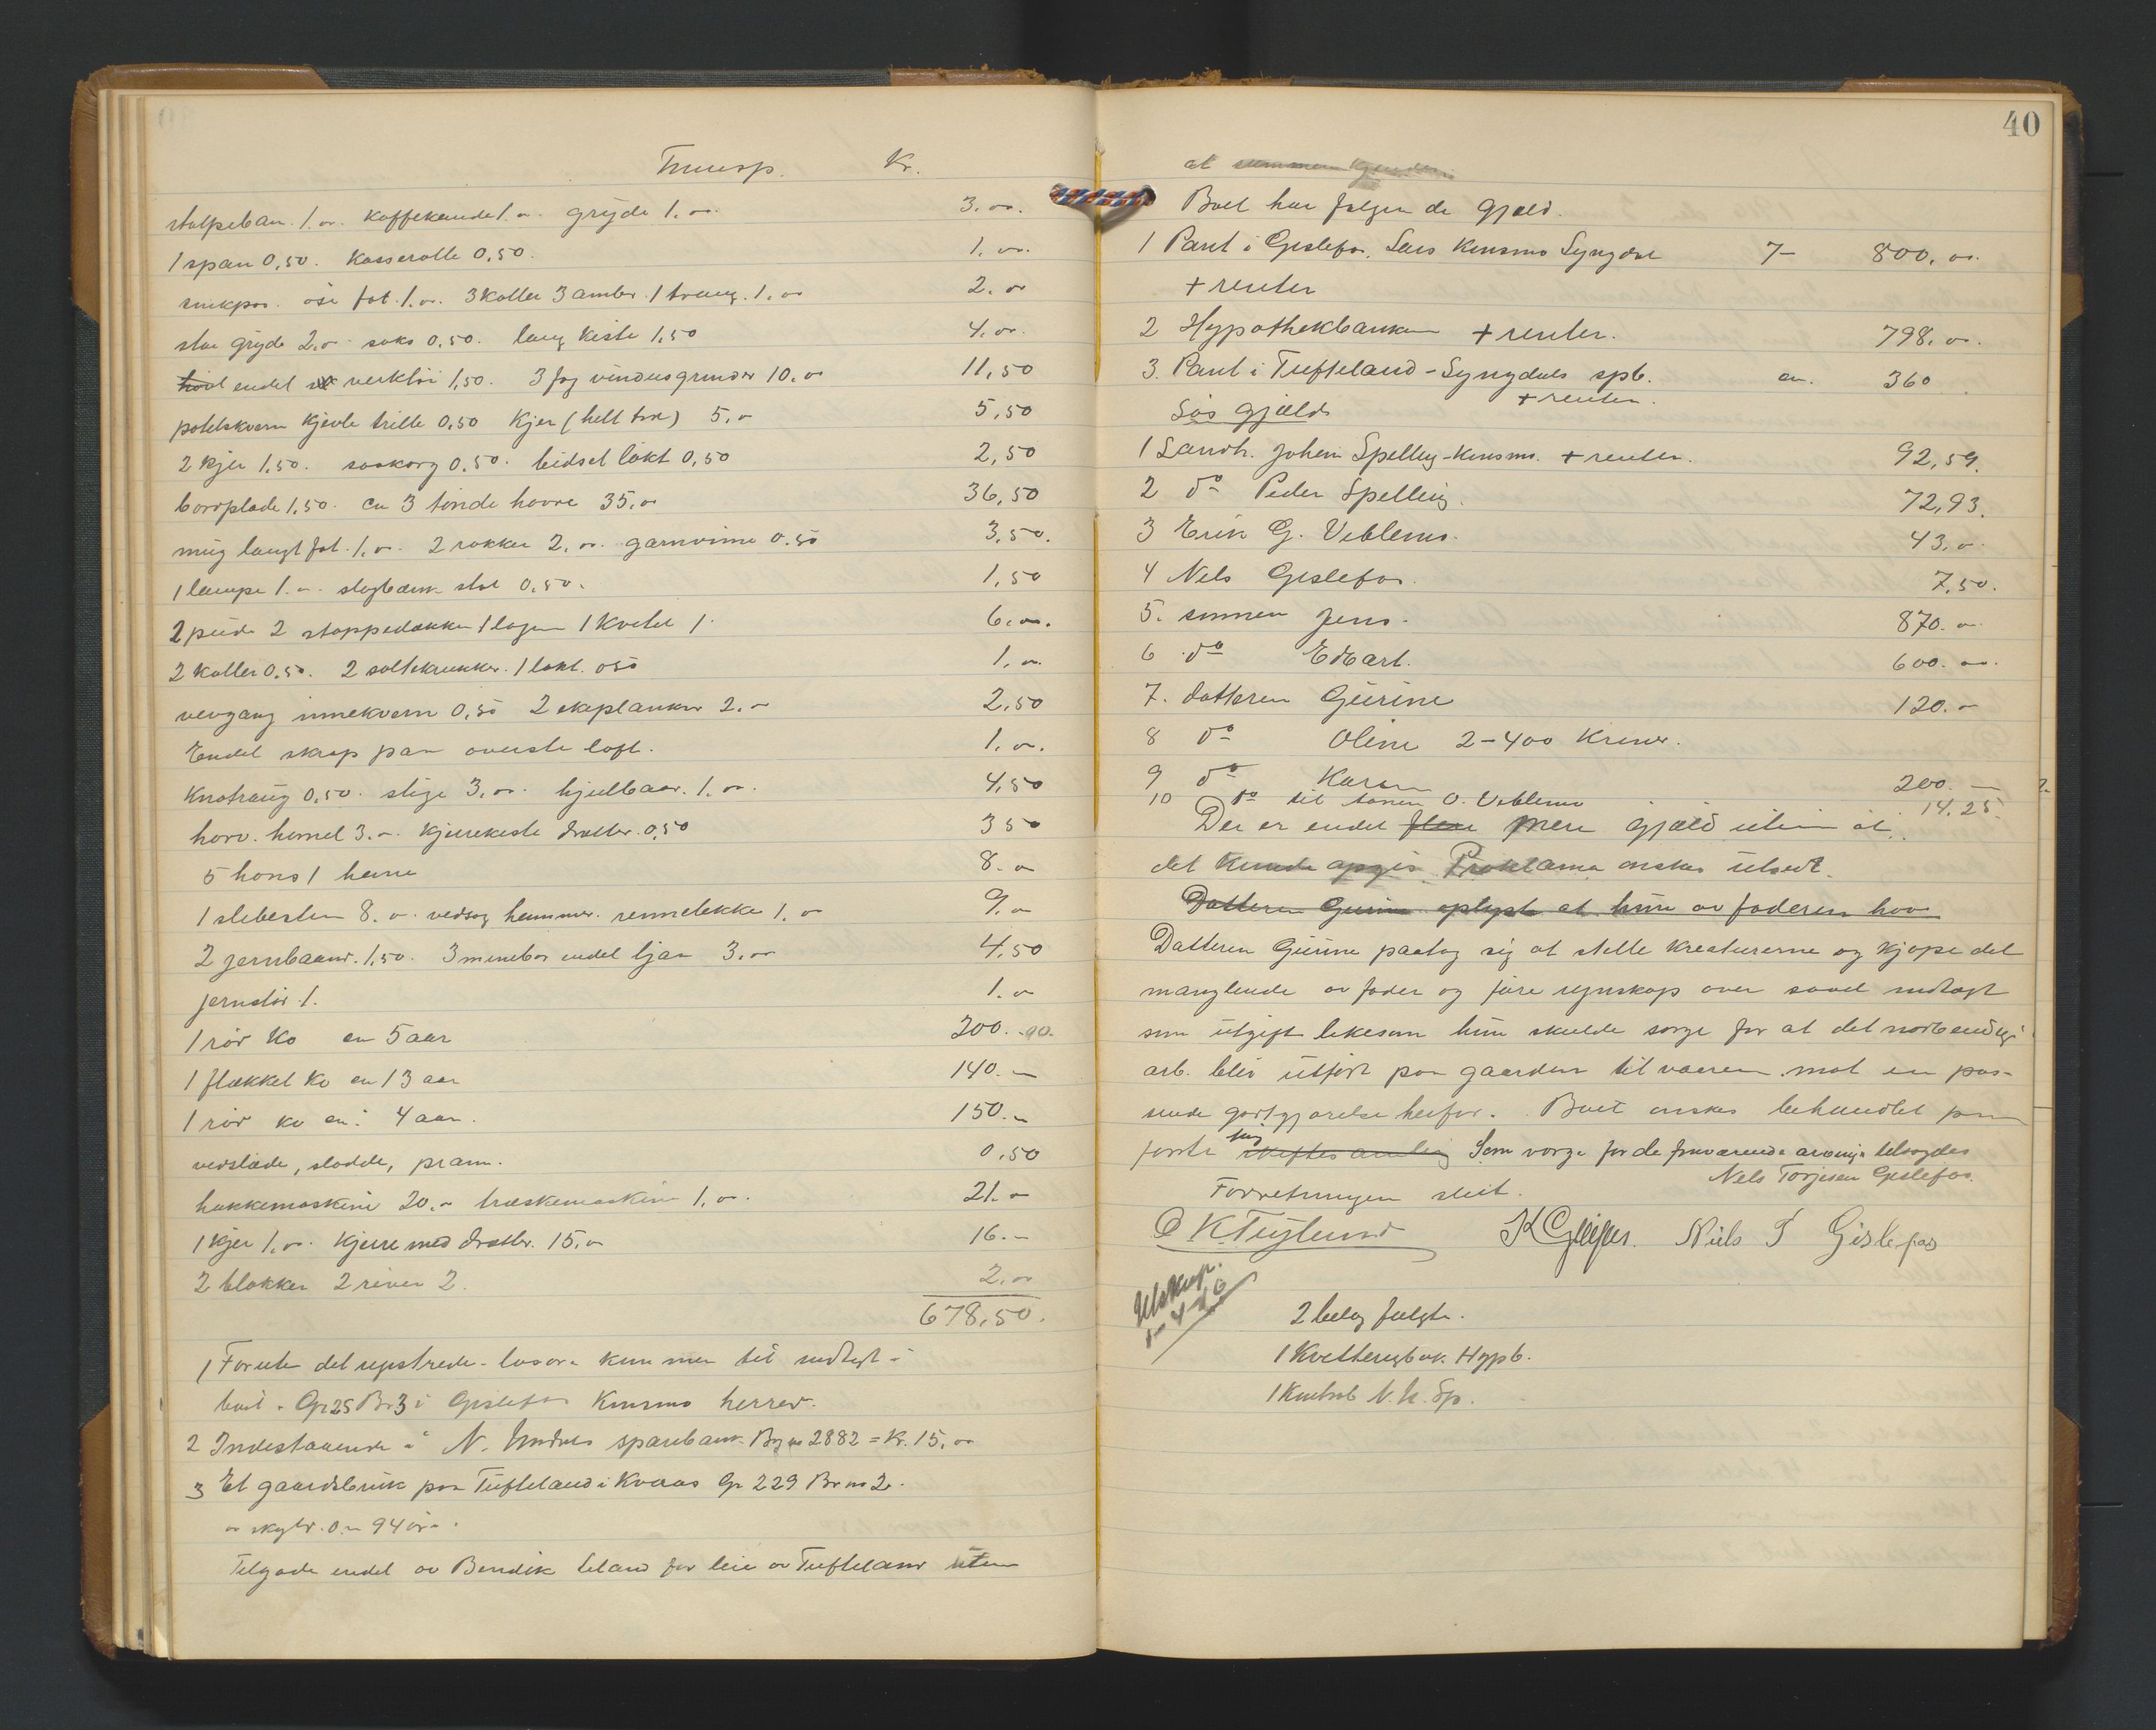 Transp. Kr.
stolpebau. 1.00. Kaffekande 1.00. gryde 1.00. 3.00.
1 span 0,50. Kasserolle 0,50. 1.00.
øse fat 1.00. 3 Koller 3 amber 1 traug 1.00 2.00
stor gryde 2.00 saks 0,50. lang Kiste 1,50 4.00.
endel verktöi 1,50. 3 fag vindusgrinder 10.00 11,50
potetskvern Kjevle trille 0,50 Kjer (helt træ) 5.00 5,50
2 Kjer 1,50. saakorg 0,50. beidsel lökt 0,50 2,50
bordplade 1,50. ca 3 tönde havre 35.00 36,50
mug langt fat. 1.00. 2 rokker 2.00. garnvinne 0.50 3,50.
1 lampe 1.00. slagbænk stol 0,50. 1,50
2 puder 2 stoppedækken 1 lagen 1 Kvetel 6.00.
2 Koller 0.50. 2 saltekrukker. 1 løkt. 050 1.00.
vevgang innekvern 0,50 2 ekeplanker 2.00 2,50
Endel skrap paa øverste loft. 1.00.
Knotraug 0,50. stige 3.00. hjulbaar. 1.00. 4,50
horv. hemel 3.00. Kjærekiste dratler. 0,50 350
5 høns 1 hane 8.00
1 slibesten 8.00. vedsag hammer. rennebekke 1.00 9.00
2 jernbaand. 1,50. 3 minebor endel ljaa 3.00 4,50
jernstör 1. 1.00
1 röd Ko ca 5 aar 200.00.
1 flækket Ko ca 13 aar 140.00
1 röd ko ca. 4 aar. 150.00
vedslæde, slodde, pram. 0,50
hakkemaskine 20.00 træskemaskine 1.00. 21.00
1 Kjer 1.00. Kjerre med dratler. 15.00 16.00
2 blokker 2 river 2. 2.00
678,50.
1 Foruten det registrerte løsøre kommer til indtægt i
boet. Gr 25 Br 3 i Gislefos Kinsmo herred.
2 Indestaaende i N. Undals sparebank Bg no 2882 = Kr. 15.00
3 Et gaardsbruk paa Tufteland i Kvaas Gr 229 Br no 2.
av skyld. 0.00 94 öre.
Tilgode endel av Bendik Leland for leie av Tufteland uten
40
at
Boet har følgende Gjæld.
1 Pant i Gislefos. Lars Kinsmo Lyngdal 7- 800.00.
+ renter
2 Hypothekbanken + renter. 798.00.
3. Pant i Tufteland - Lyngdals spb. ca. 360
+ renter.
Løs gjæld
1 Landh. Johan Spelling - Kinsmo. + renter. 92,59.
2 do Peder Spelling. 72,93.
3 Erik G. Veblemo. 43.00
4 Nels Gislefos. 7,50.
5. sønnen Jens. 870.00
6 do Edvart. 600.00.
7. datteren Gurine 120.00
8 do Oline 2-400 Kroner.
9 do Karen 200.— 2.
10 do til O. Veblemo 14.25.
Der er endel flere mere gjæld uten at
det kunde opgis Proklama ønskes utsedt.
Datteren Gurine oplyste at hun av faderen hos
Datteren Gurine paatog sig at stelle kreaturerne og kjøpe det
manglende av foder og före regnskap over saavel indtægt
som utgift likesom hun skulde sørge for at det nødvendige
arb. blev utført paa gaarden til vaaren mot en pas-
sende godtgjørelse herfor. Boet ønskes behandlet paa
Som verge for de fraværende arvinger tilsagdes
Nels Torjesen Gislefos.
Forretningen slut.
O K. Tuylund Niels T Gislefos
Utskrap.
2 bilag fulgte.
1 Kvitteringbok Hypb.
1 Kontrab N. U. Sp.